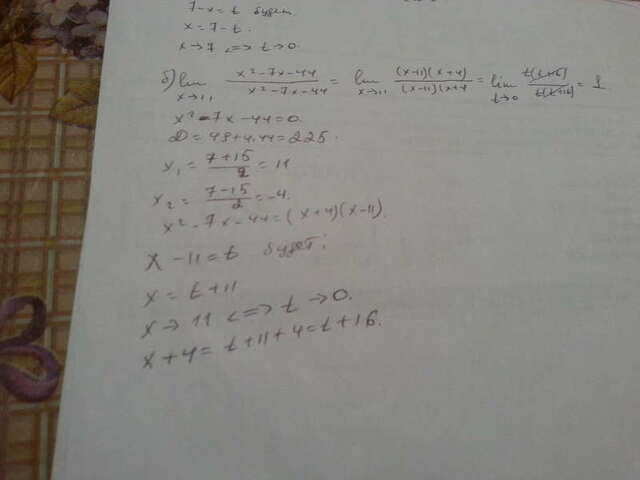 7-x=t будет
x=7-t.
x→7 <=> t→0.
б) lim x→11 (x²-7x-44)/(x²-7x-44) = lim x→11 ((x-11)(x+4))/((x-11)(x+4) = lim t→0 (t(t+16))/(t(t+16)) = 1
x²-7x-44=0.
D=49+4.44=225.
x₁ = (7+15)/2 = 11
x₂ = (7-15)/2 = -4.
x²-7x-44=(x+4)(x-11).
x-11=t будет:
x=t+11
x→11 <=> t→0.
x+4=t+11+4=t+16.